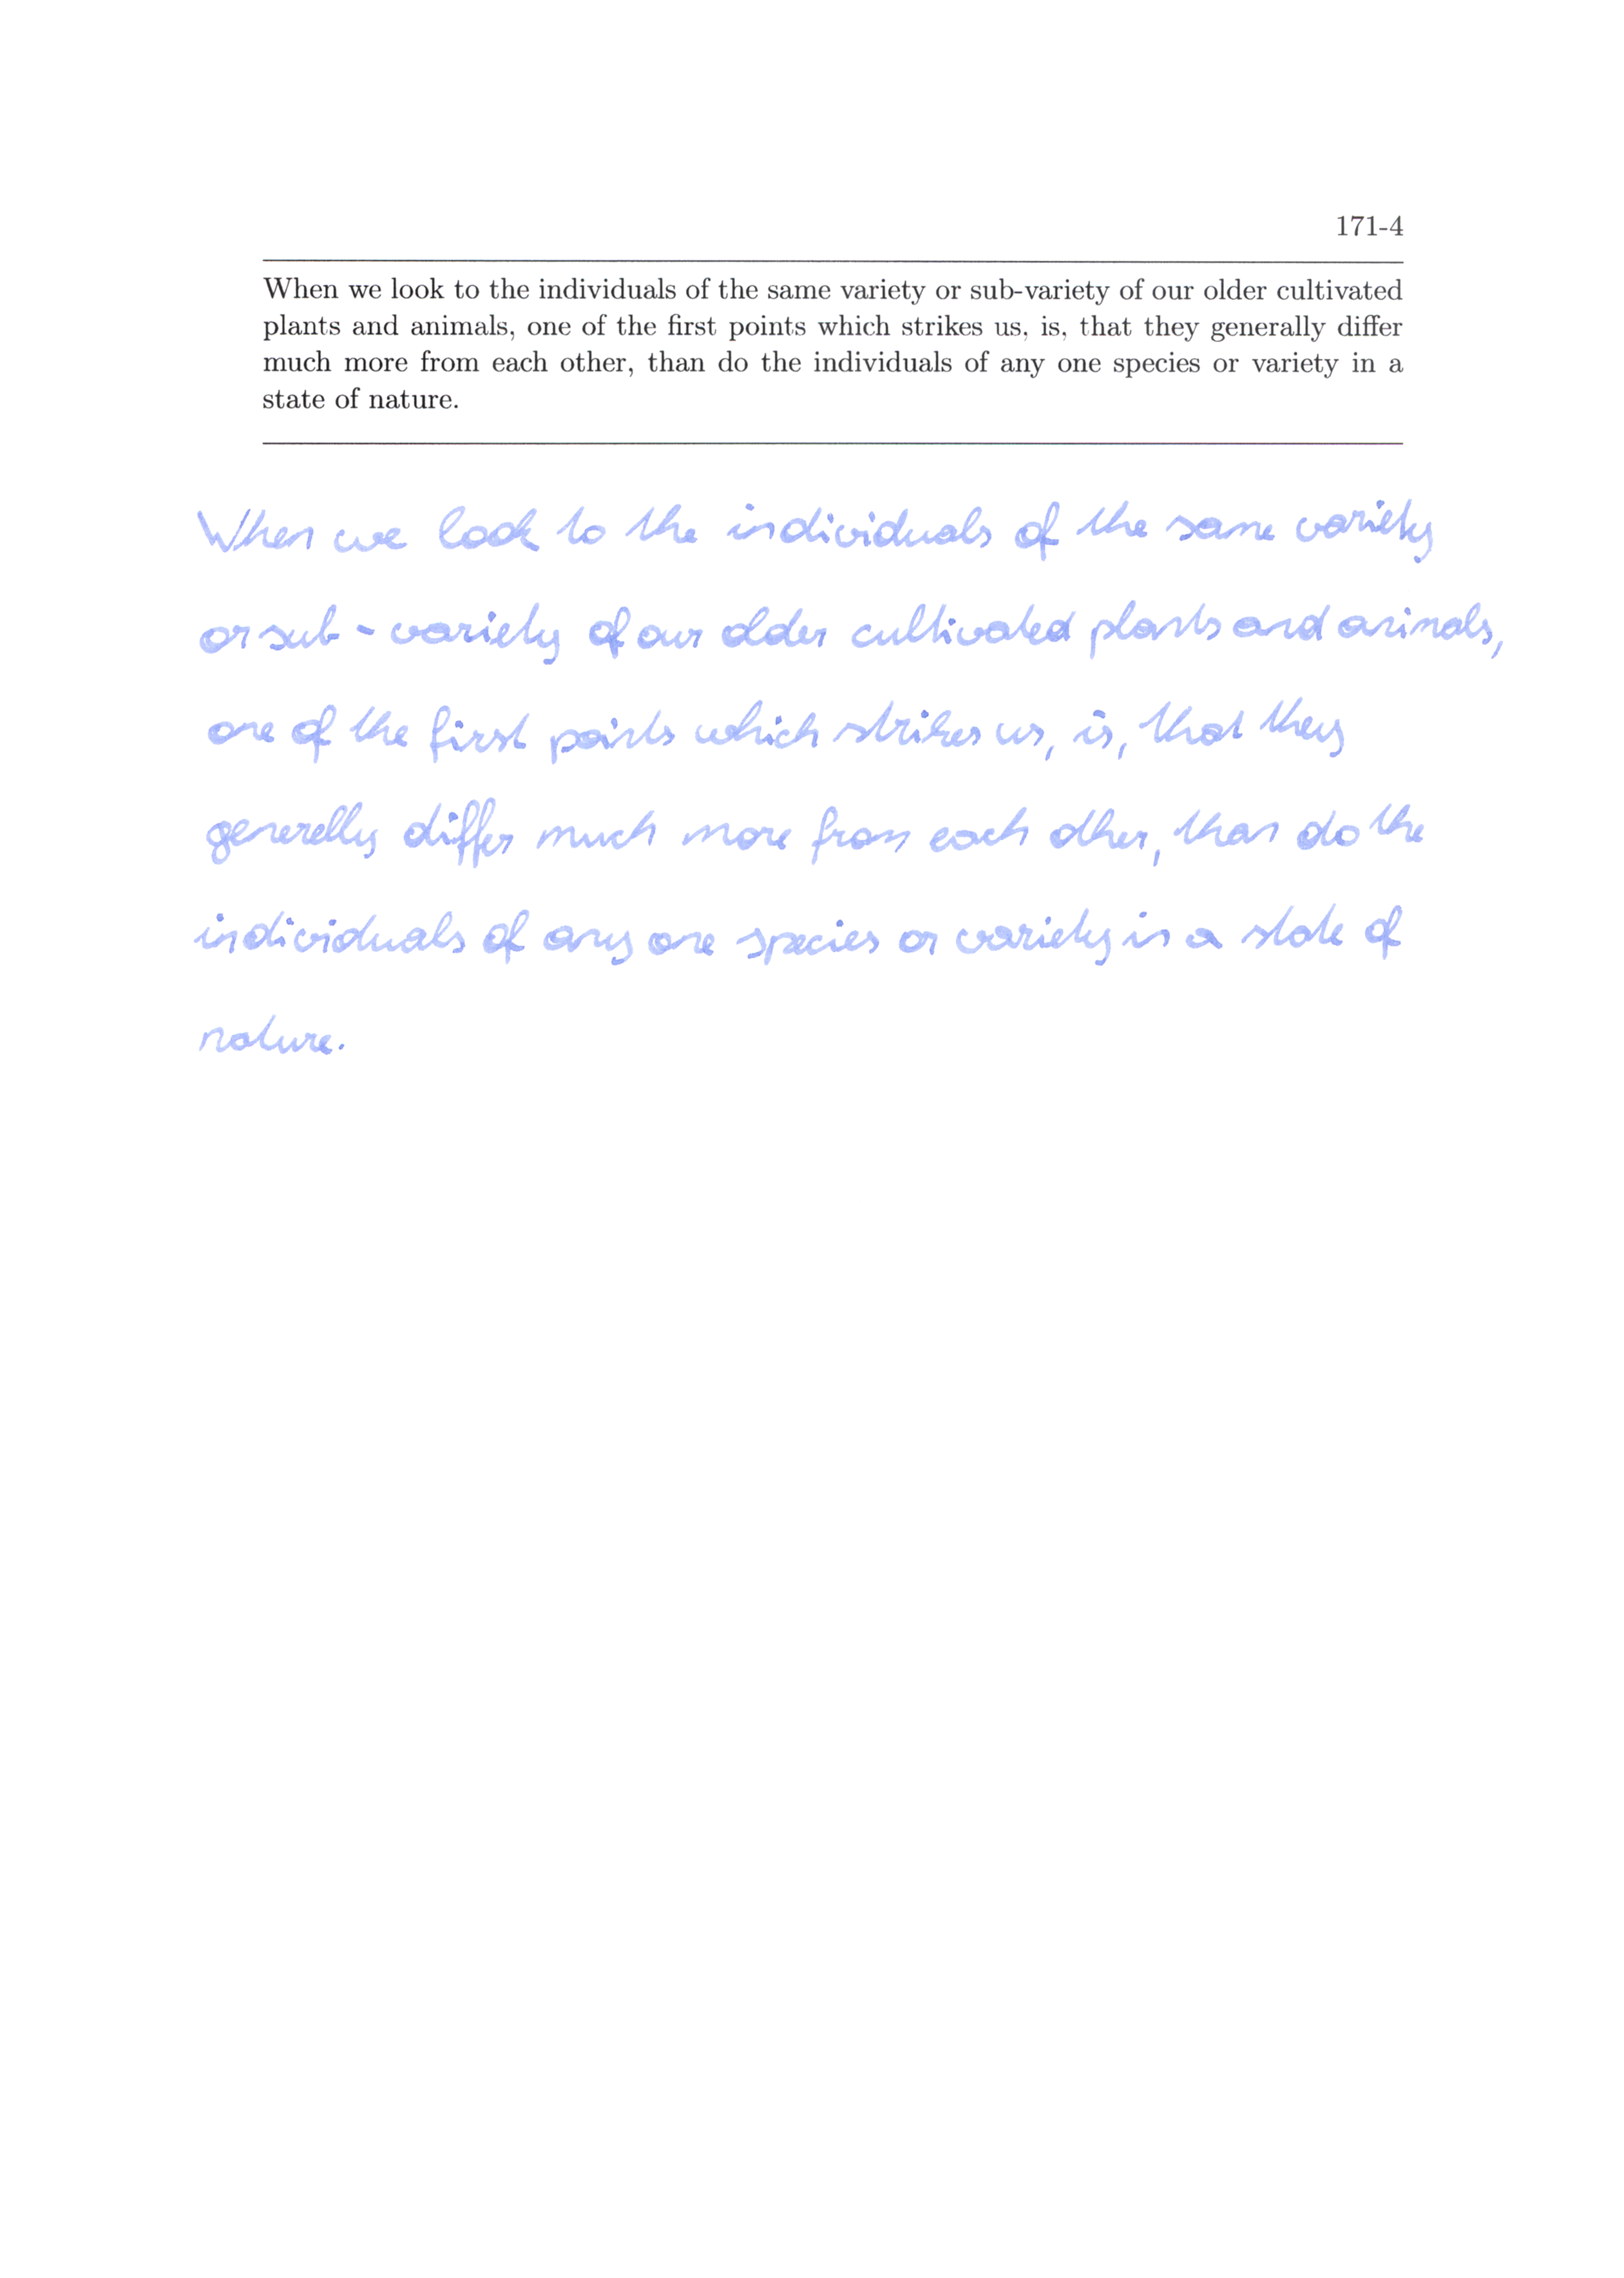 171-4
When we look to the individuals of the same variety or sub-variety of our older cultivated
plants and animals, one of the first points which strikes us, is, that they generally differ
much more from each other, than do the individuals of any one species or variety in a
state of nature.
When we look to the individuals of the same variety
or sub-variety of our older cultivated plants and animals,
one of the first points which strikes us, is, that they
generelly differ much more from each other, than do the
individuals of any one species or variety in a state of
nature.